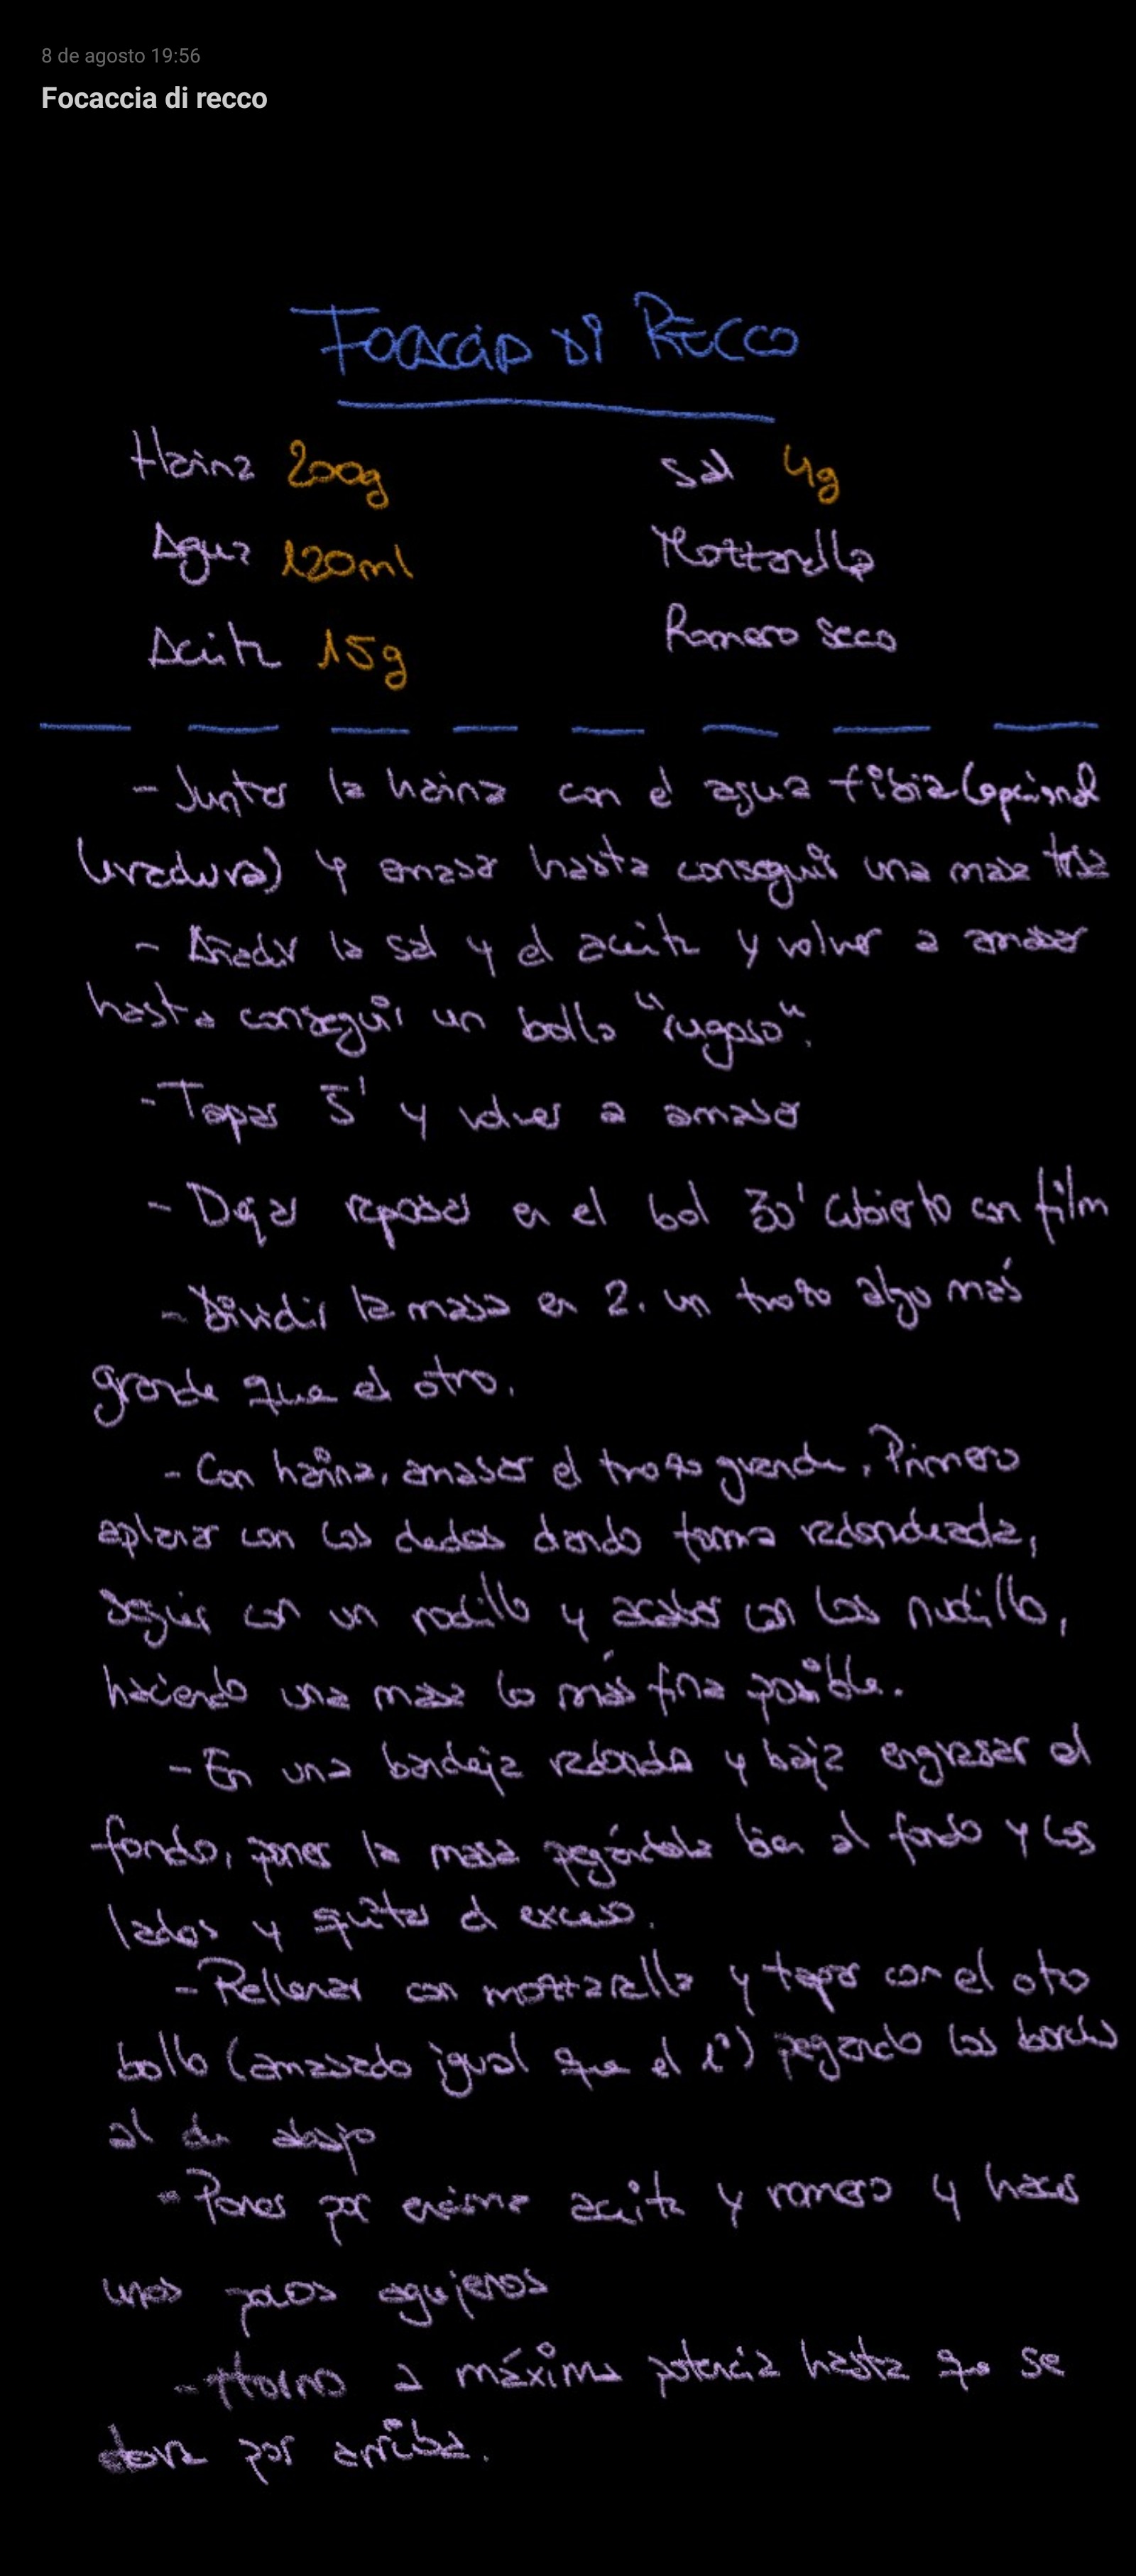 8 de agosto 19:56
Focaccia di recco
FOCACCIA DI RECCO
Harina 200g Sal 4g
Agua 120ml Mozzarella
Aceite 15g Romero seco
- Juntar la harina con el agua tibia (opcional
levadura) y amasar hasta conseguir una masa
- Añadir la sal y el aceite y volver a amasar
hasta conseguir un bollo "rugoso".
- Tapar 5' y volver a amasar
- Dejar reposar en el bol 30' cubierto con film
- Dividir la masa en 2. un trozo algo más
grande que el otro.
- Con harina, amasar el trozo grande. Primero
aplanar con los dedos dando forma redondeada,
seguir con un rodillo y acabar con los nudillo,
haciendo una masa lo más fina posible.
- En una bandeja redonda y baja engrasar el
fondo, poner la masa pegándola bien al fondo y los
lados y quitar el exceso.
- Rellenar con mozzarella y tapar con el otro
bollo (amasado igual que el 1º) pegando los bordes
al de abajo
- Poner por encima aceite y romero y hacer
unos pocos agujeros
- Horno a máxima potencia hasta que se
dore por arriba.